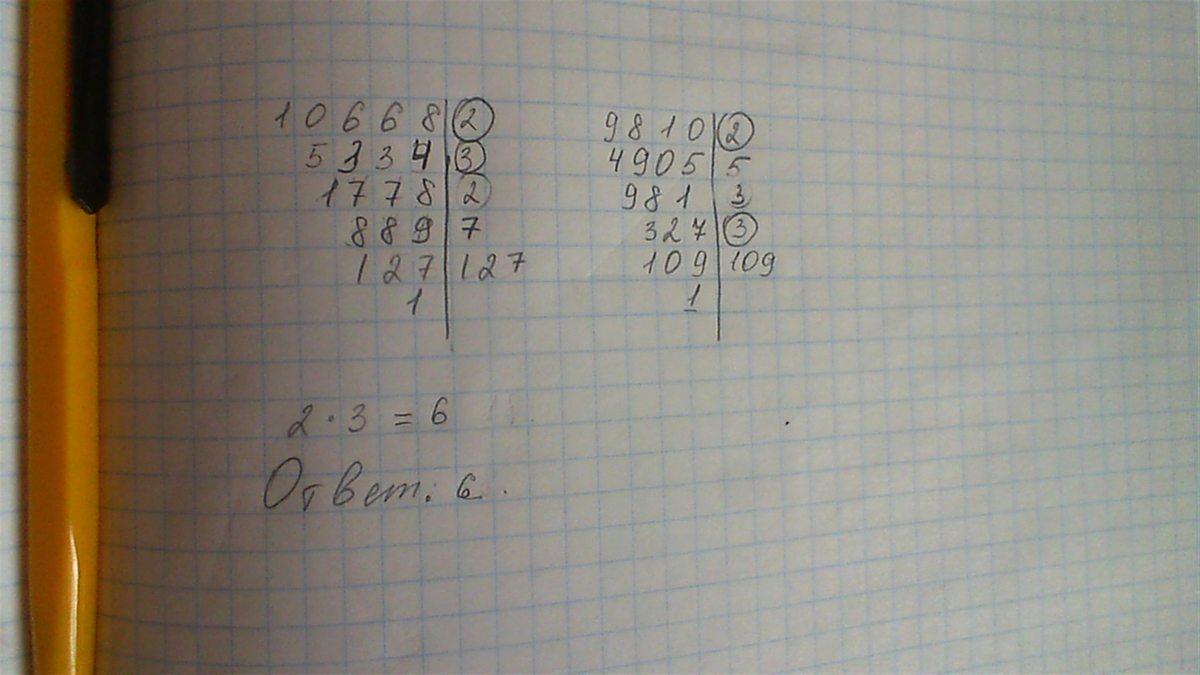 10668 | 2
5334 | 3
1778 | 2
889 | 7
127 | 127
1
9810 | 2
4905 | 5
981 | 3
327 | 3
109 | 109
1
2 · 3 = 6
Ответ: 6.